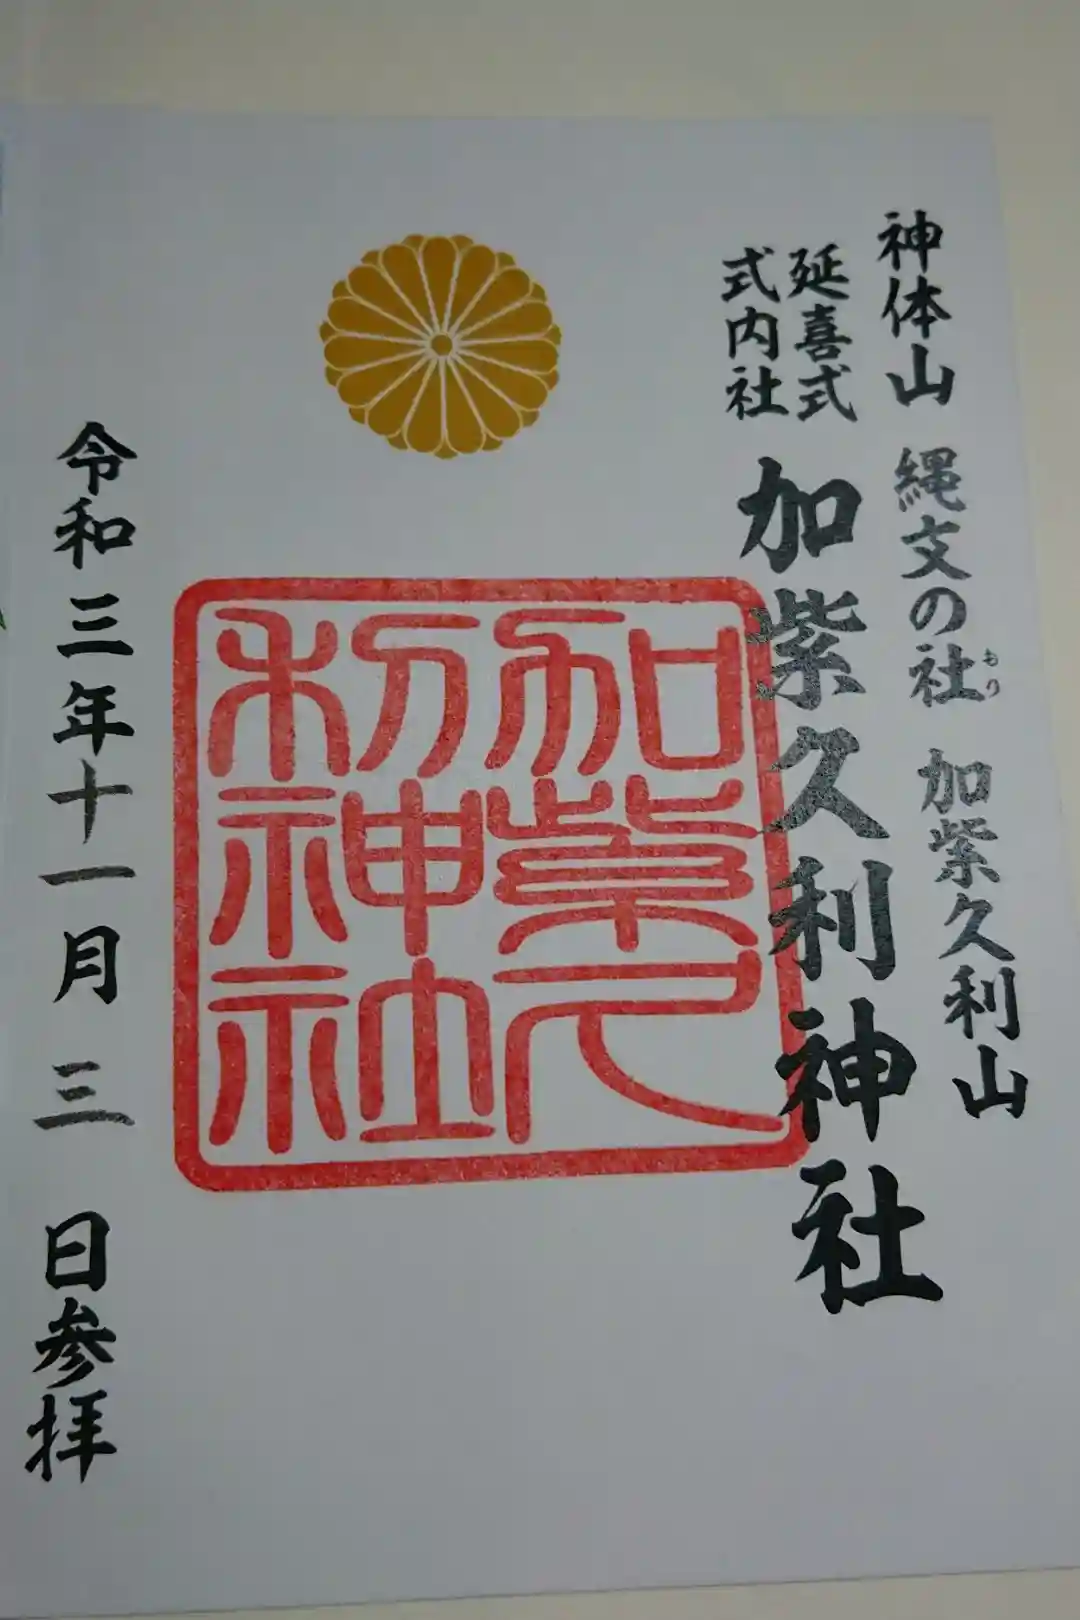 神体山 縄文の社 加紫久利山
おり
延喜式
式内社
加紫久利神社
加紫久
利神社
令和三年十一月三日参拝